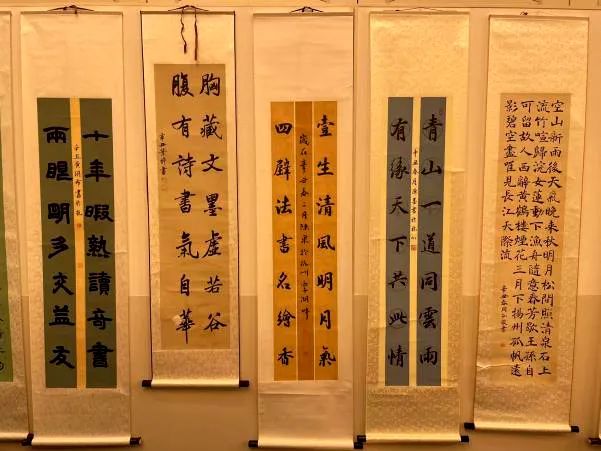 空山新雨後天氣晚來秋明月松間照清泉石上
流竹喧歸浣女蓮動下漁舟隨意春芳歇王孫自
可留故人西辭黃鶴樓煙花三月下揚州孤帆遠
影碧空盡唯見長江天際流
青山一道同雲雨
辛丑春月
有緣天下共此情
壹生清風明月氣
歲在辛丑春三月
四壁法書名繪香
胸藏文墨虛若谷
腹有詩書氣自華
十年暇熟讀奇書
兩眼明多交益友